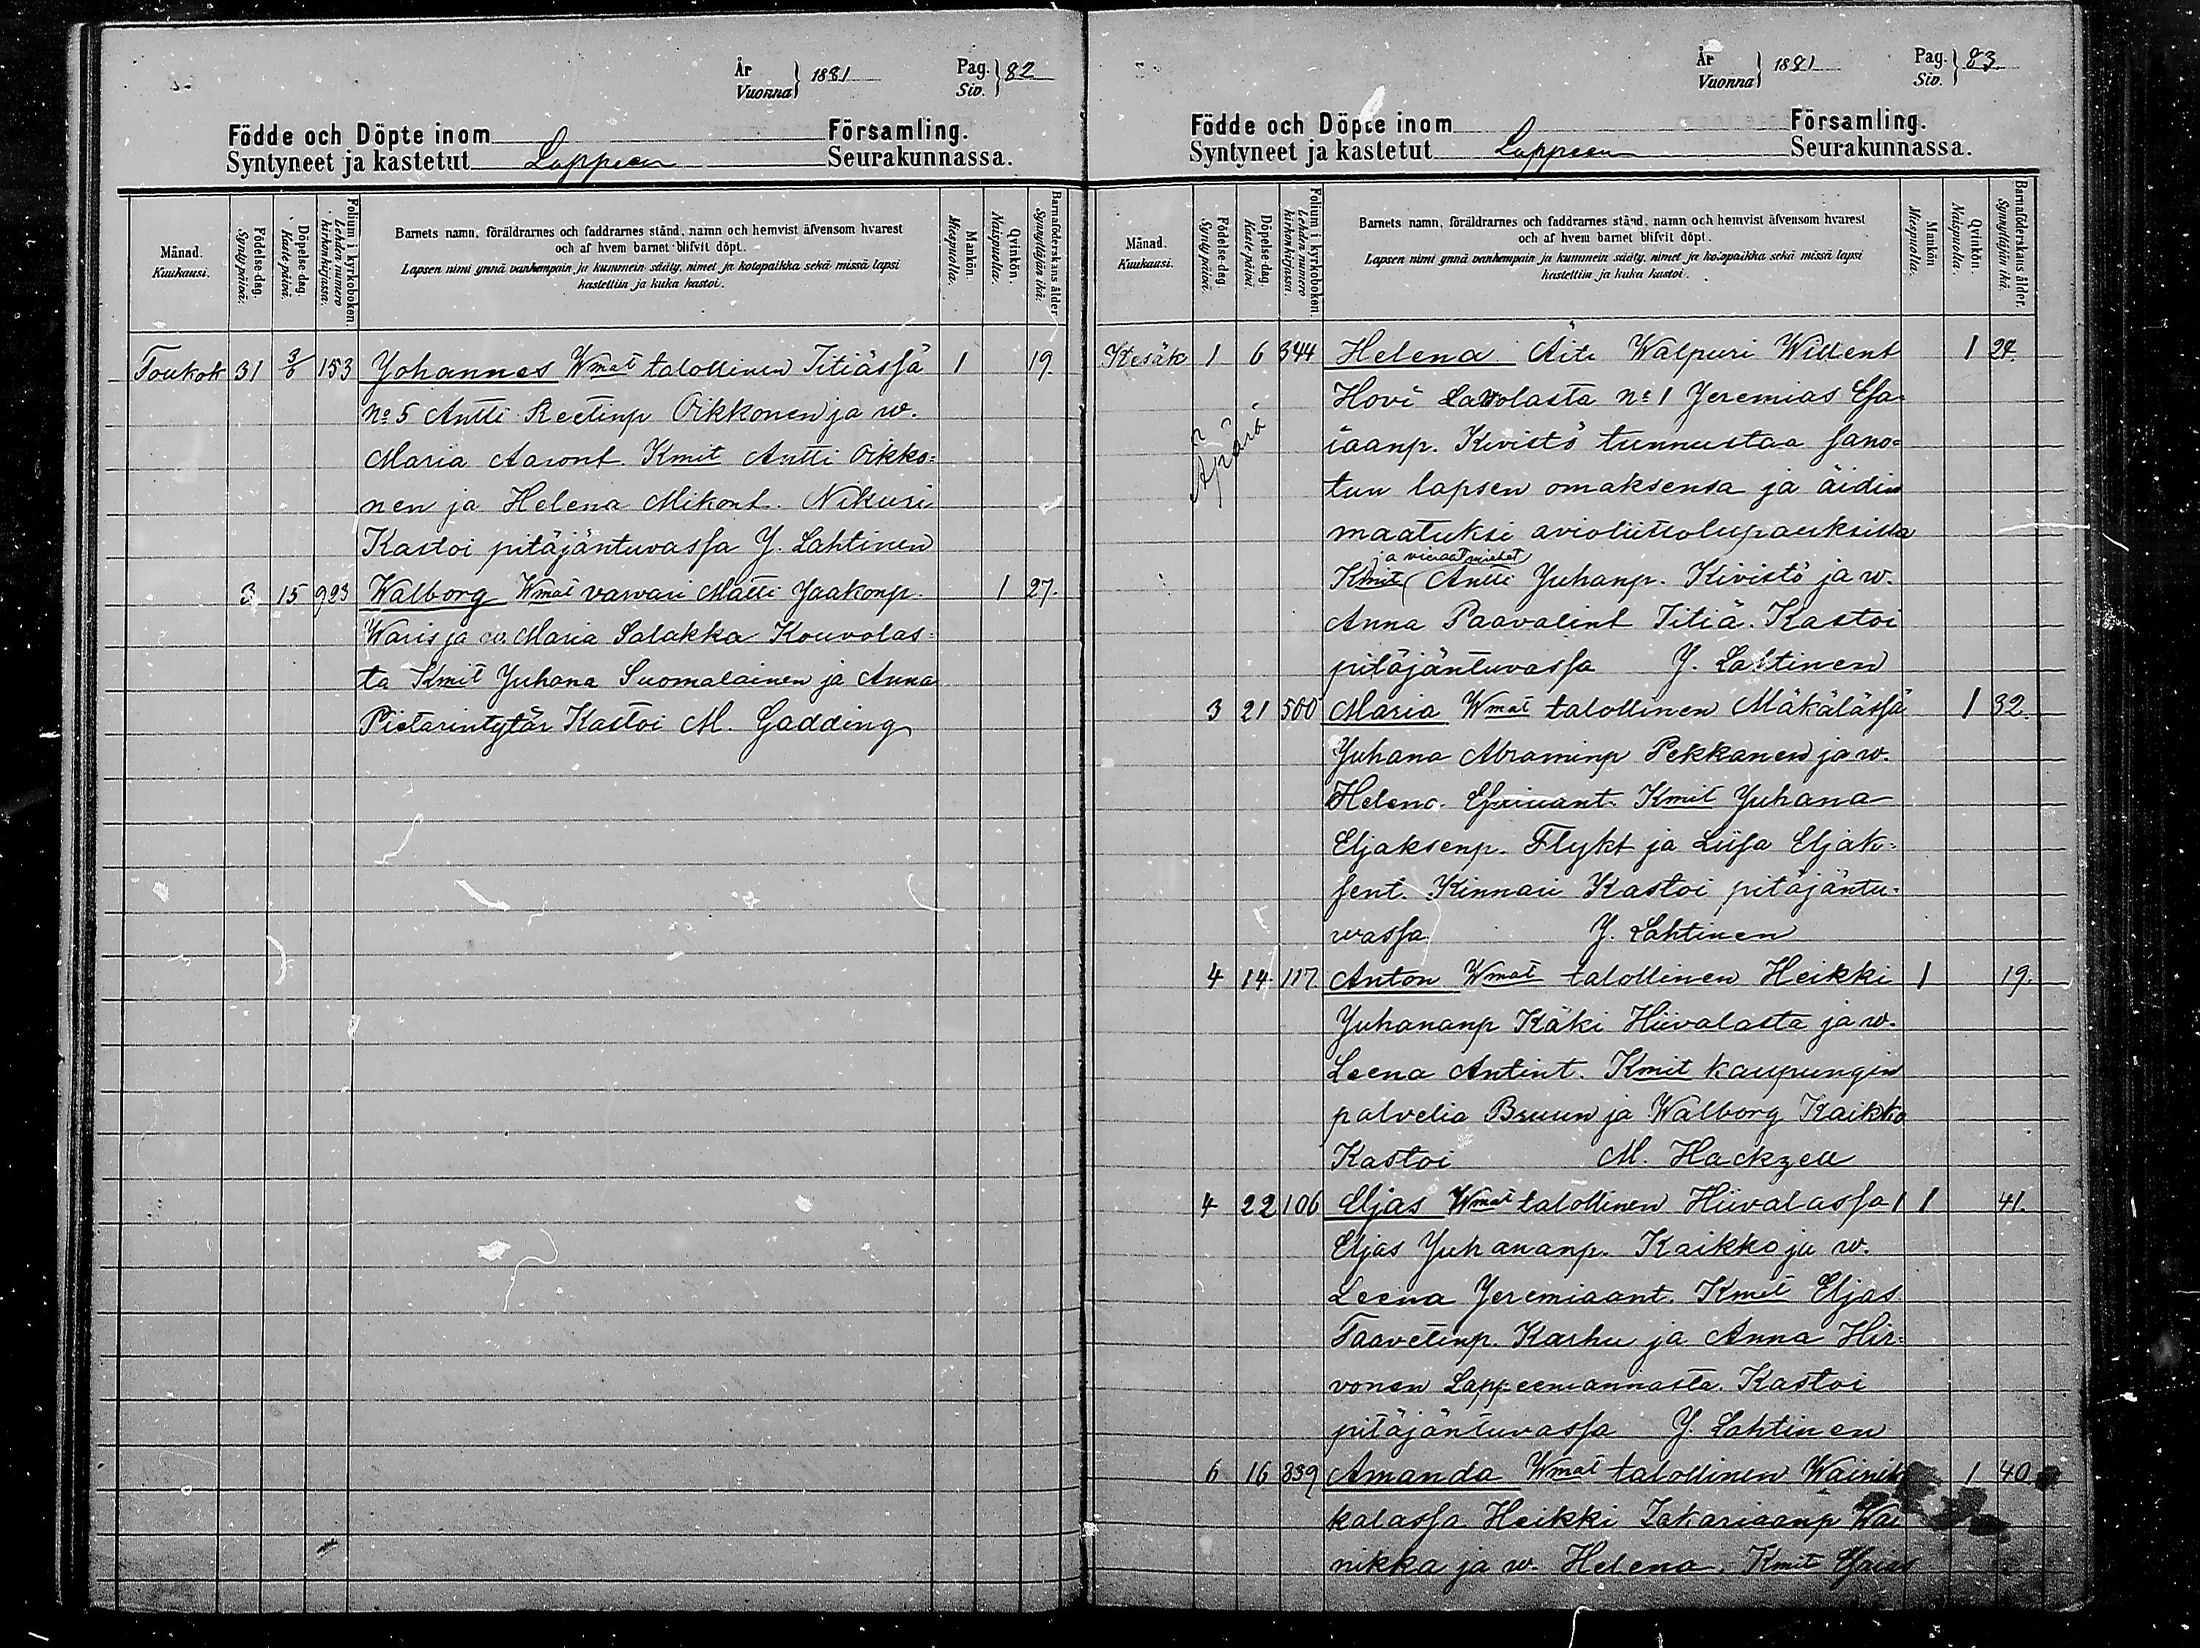 År
Vuonna } 1881
Pag.
Siv. } 82
Födde och Döpte inom Församling.
Syntyneet ja kastetut Lappeen Seurakunnassa.
Månad.
Kuukausi.
Födelse-dag.
Synty päivä.
Döpelse-dag.
Kaste päivä.
Folium i kyrkoboken.
Lehden numero
kirkonkirjassa.
Barnets namn, föräldrarnes och faddrarnes stånd, namn och hemvist äfvensom hvarest
och af hvem barnet blifvit döpt.
Lapsen nimi ynnä vanhempain ja kummein sääty, nimet ja kotopaikka sekä missä lapsi
kastettiin ja kuka kastoi.
Mankön.
Miespuolia.
Qvinkön.
Naispuolia.
Barnaföderskans ålder.
Synnyttäjän ikä.
Toukok 31 3/6 153 Johannes Wmat talollinen Titiässä 1 19.
No 5 Antti Reetinp Oikkonen ja w.
Maria Aaront. Kmit Antti Oikko=
nen ja Helena Mikont. Nikuri
Kastoi pitäjäntuvassa J. Lahtinen
3 15 923 Walborg Wmat vawari Matti Jaakonp. 1 27.
Waris ja w. Maria Salakka Kouvolas=
ta Kmit Juhana Suomalainen ja Anna
Pietarintytär Kastoi M. Gadding
År
Vuonna } 1881
Pag.
Siv. } 83.
Födde och Döpte inom Församling.
Syntyneet ja kastetut Lappeen Seurakunnassa.
Månad.
Kuukausi.
Födelse-dag.
Synty päivä.
Döpelse-dag.
Kaste päivä.
Folium i kyrkoboken.
Lehden numero
kirkonkirjassa.
Barnets namn, föräldrarnes och faddrarnes stånd, namn och hemvist äfvensom hvarest
och af hvem barnet blifvit döpt.
Lapsen nimi ynnä vanhempain ja kummein sääty, nimet ja kotopaikka sekä missä lapsi
kastettiin ja kuka kastoi.
Mankön.
Miespuolia.
Qvinkön.
Naispuolia.
Barnaföderskans ålder.
Synnyttäjän ikä.
Kesäk 1 6 344 Helena Äiti Walpuri Willent 1 24.
Hovi Lavolasta No 1 Jeremias Esa=
iaanp. Kivistö tunnustaa sano=
Äpärä
tun lapsen omaksensa ja äidin
maatuksi avioliittolupauksilla
ja vieraat miehet
Kmit Antti Juhanp. Kivistö ja w.
Anna Paavalint Titiä. Kastoi
pitäjäntuvassa J. Lahtinen
3 21 500 Maria Wmat talollinen Mäkälässä 1 32.
Juhana Abraminp Pekkanen ja w.
Helena Kmit Juhana
Eljaksenp. Flykt ja Liisa Eljak=
sent. Kinnari Kastoi pitäjäntu=
wassa J. Lahtinen
4 14 117. Anton Wmat talollinen Heikki 1 19.
Juhananp Käki Hiivalasta ja w.
Leena Antint. Kmit kaupungin
palvelia Bruun ja Walborg Kaikko
Kastoi M. Hackzell
4 22 106 Eljas Wmat talollinen Hiivalassa 1 1 41.
Eljas Juhananp. Kaikko ja w.
Leena Jeremiaant. Kmit Eljas
Taavetinp. Karhu ja Anna Hir=
vonen Lappeenrannasta. Kastoi
pitäjäntuvassa J. Lahtinen
6 16 339 Amanda Wmat talollinen Wainik 1 40
kalassa Heikki Sakariaanp Wai
nikka ja w. Helena. Kmit Esaias